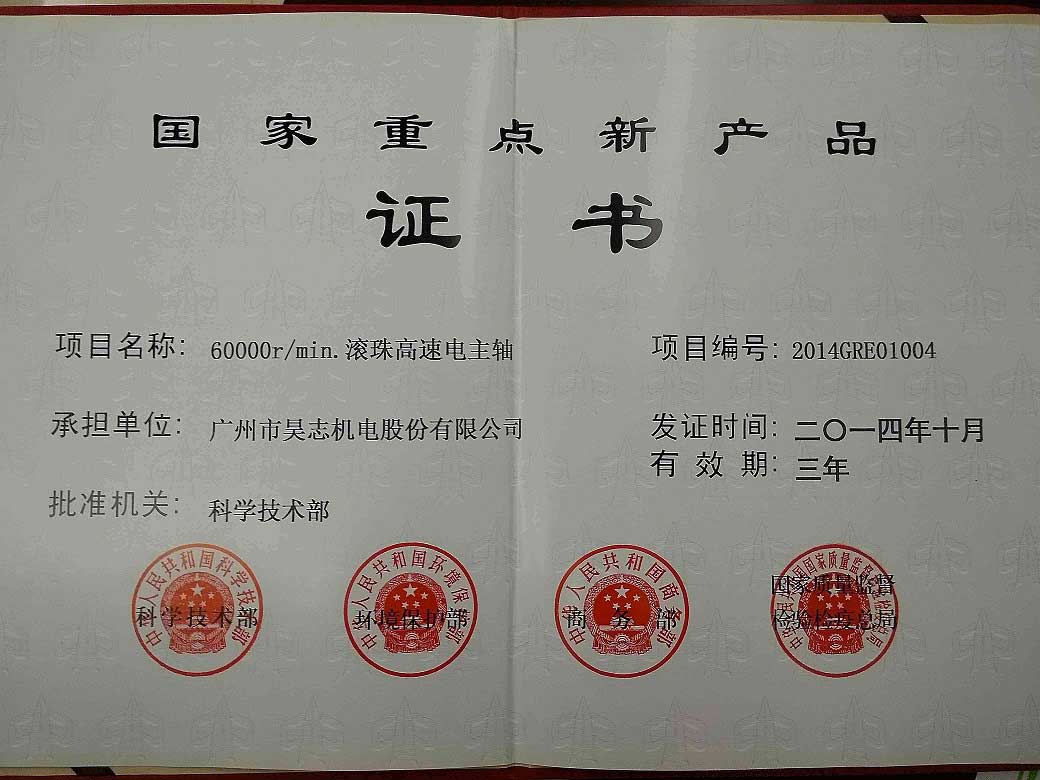 国家重点新产品
证书
项目名称: 60000r/min.滚珠高速电主轴
项目编号: 2014GRE01004
承担单位: 广州市昊志机电股份有限公司
发证时间: 二〇一四年十月
有效期: 三年
批准机关: 科学技术部
中华人民共和国科学技术部
科学技术部
中华人民共和国环境保护部
环境保护部
中华人民共和国商务部
商务部
国家质量监督
检验检疫总局